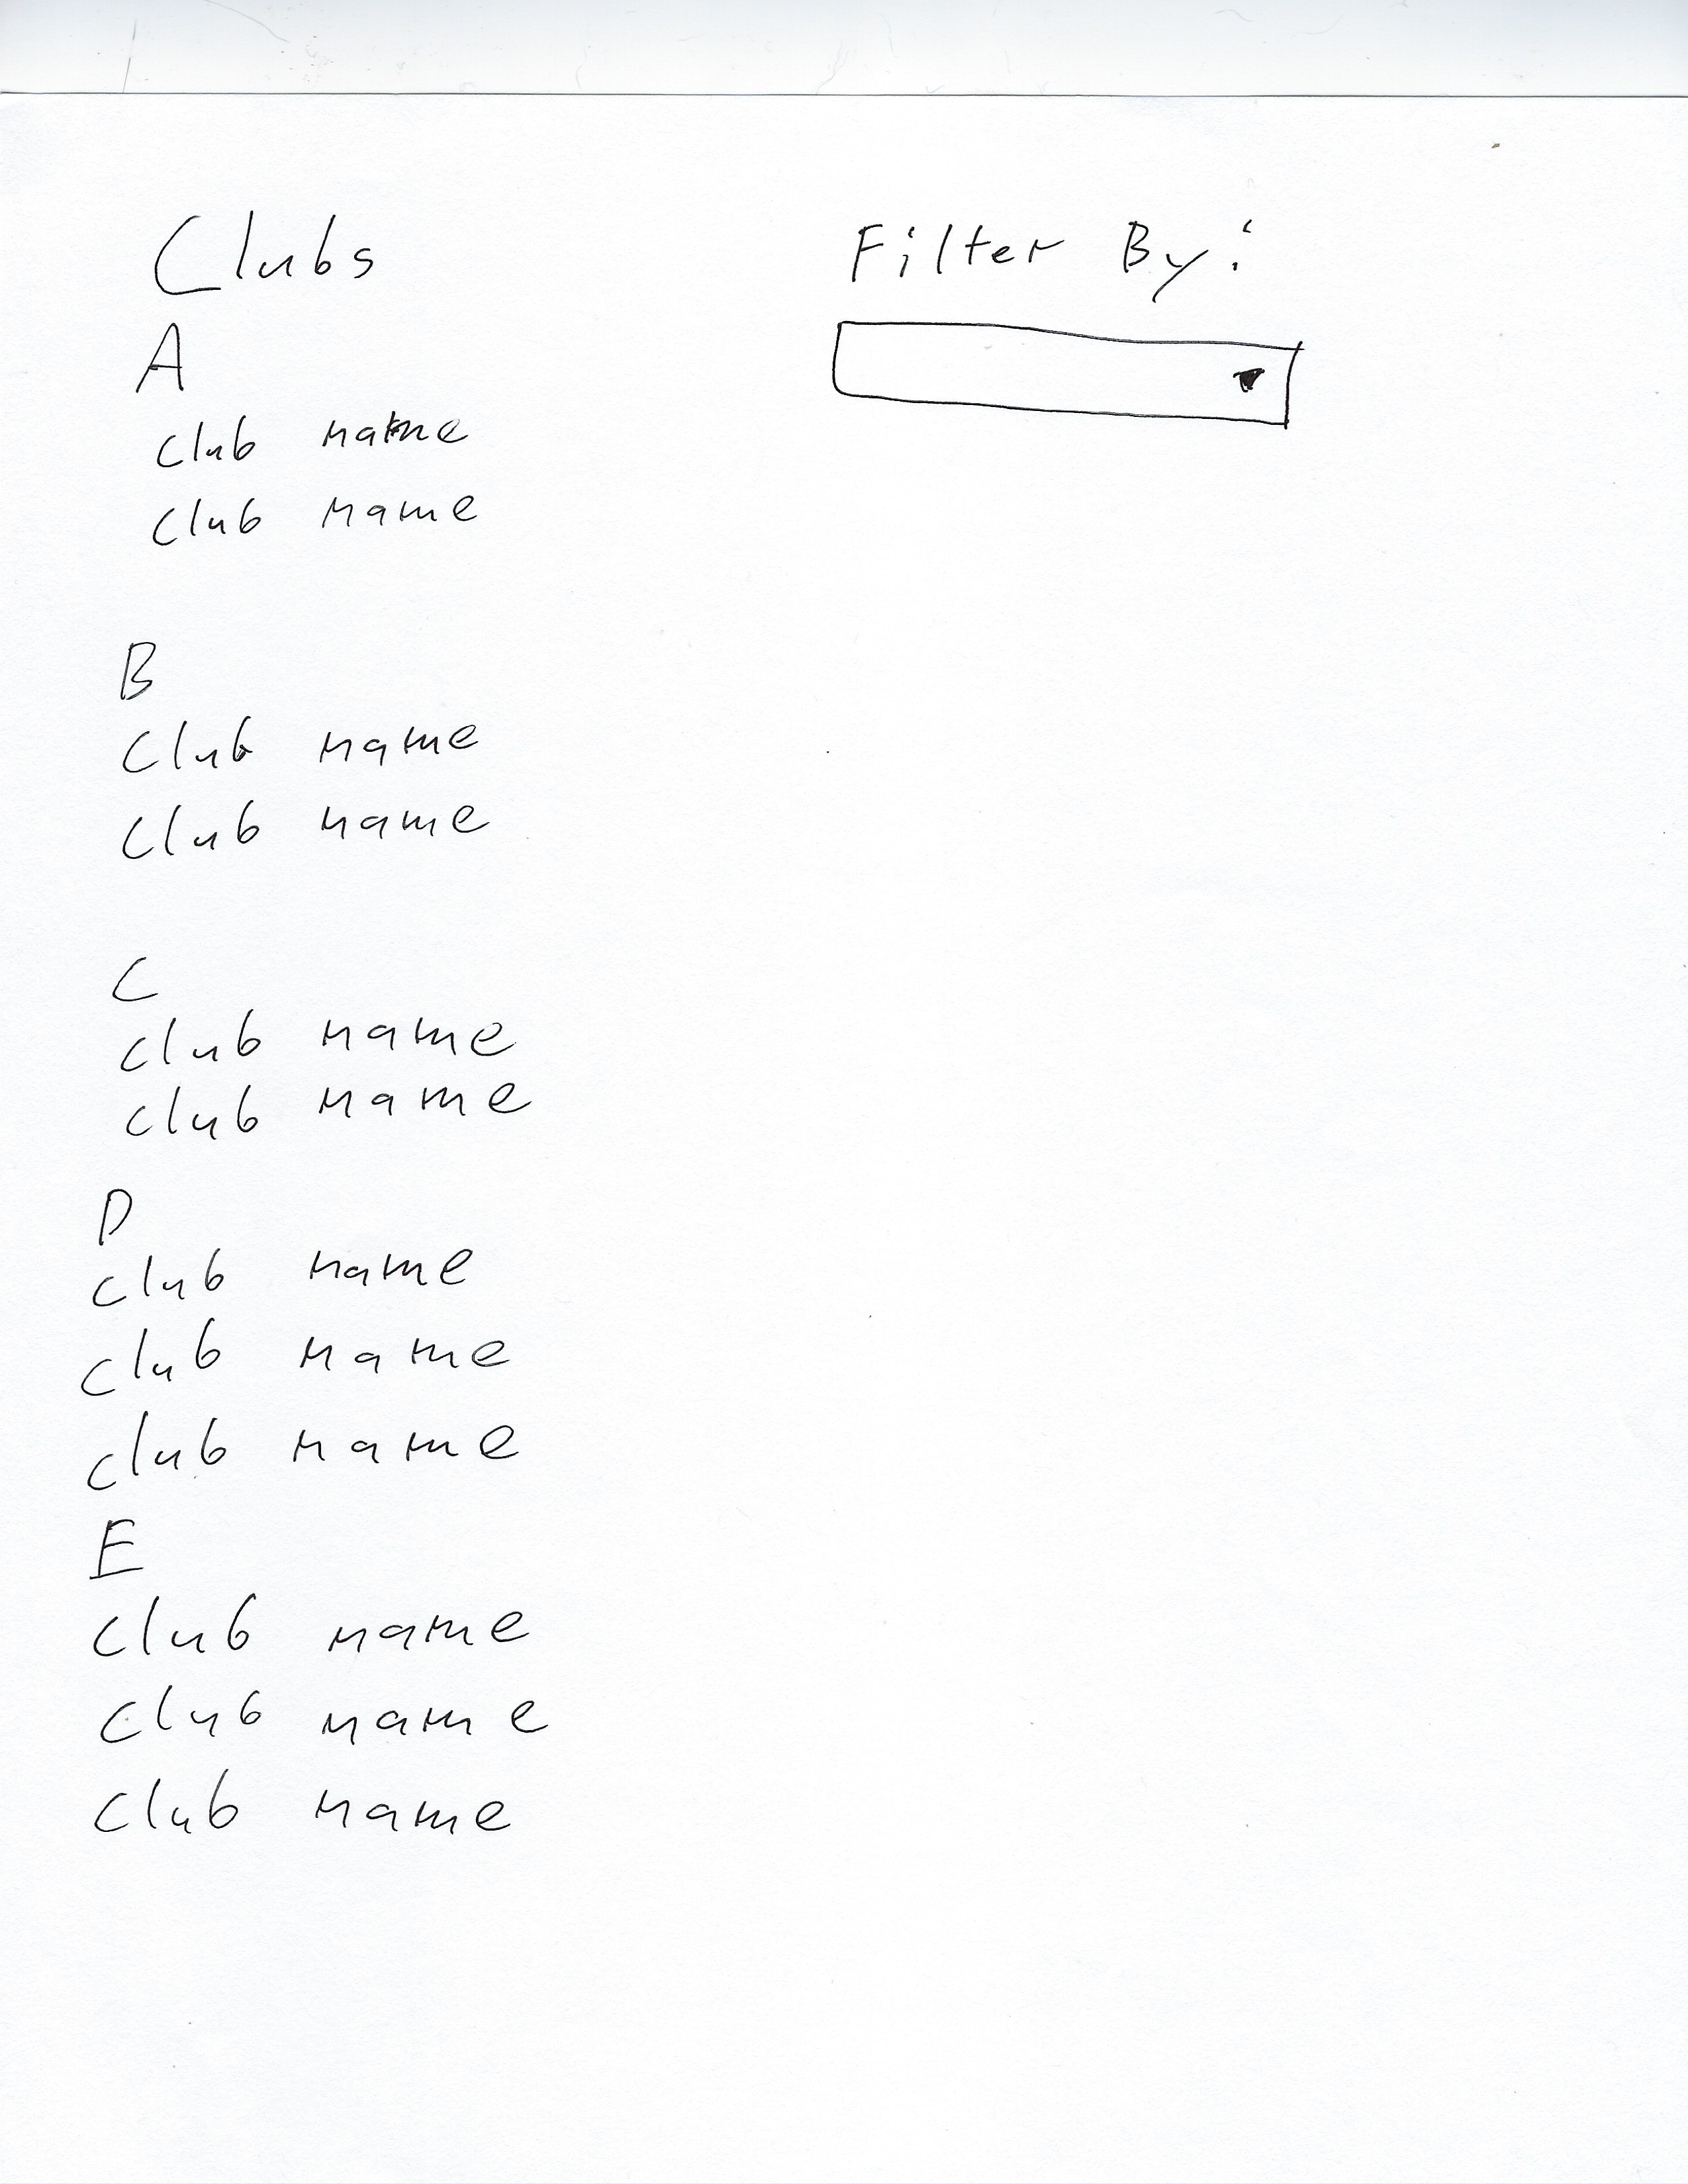 Clubs
Filter By:
A
club name
club name
B
Club name
Club name
C
club name
club name
D
club name
club name
club name
E
Club name
Club name
Club name